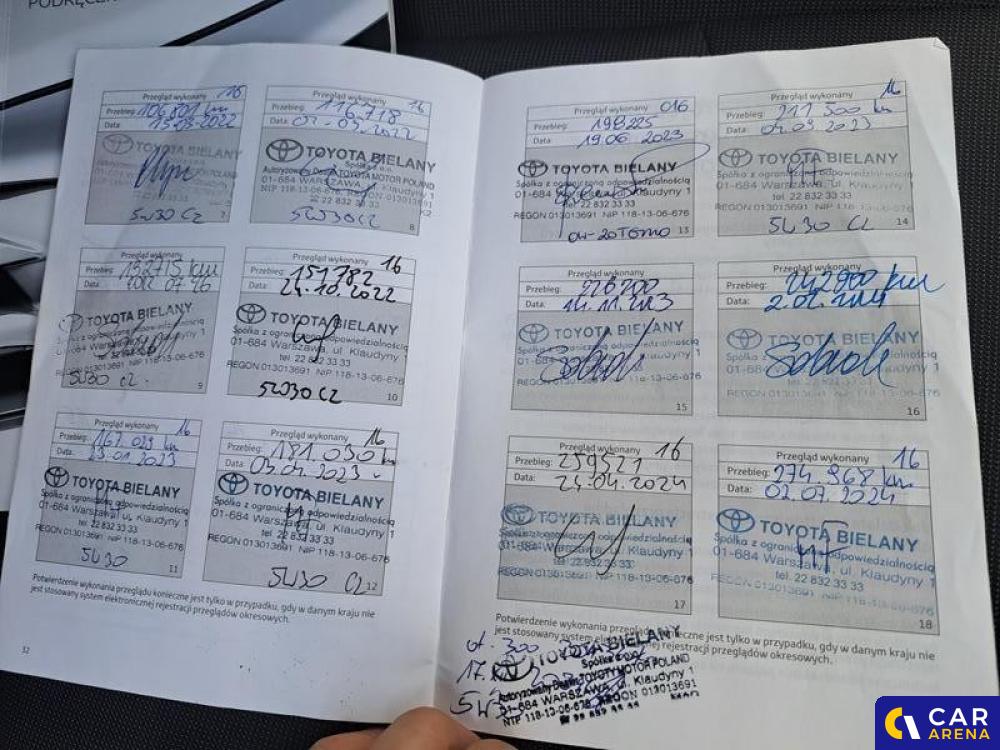 PODRĘCZ
Przegląd wykonany 16
Przebieg: 106 801 km
Data:
TOYOTA BIELANY
5W30 C2
7
Przegląd wykonany 16
Przebieg: 116 718
Data: 2022
TOYOTA BIELANY
Spółka z o.o.
Autoryzowany Dealer TOYOTA MOTOR POLAND
01-684 WARSZAWA, ul. Klaudyny 1
☎ 22 832 33 33
NIP 118-13-06-676 REGON 013013691
5W30 C2
8
Przegląd wykonany
Przebieg: 132715 km
Data: 2022 07 26
TOYOTA BIELANY
Spółka z ograniczoną odpowiedzialnością
5W30 C2.
9
Przegląd wykonany 16
Przebieg: 151782
Data: 24.10.2022
TOYOTA BIELANY
Spółka z ograniczoną odpowiedzialnością
01-684 Warszawa, ul. Klaudyny 1
tel. 22 832 33 33
REGON 013013691 NIP 118-13-06-676
5W30 C2
10
Przegląd wykonany 16
Przebieg: 167.029 km
Data: 23.01.2023
TOYOTA BIELANY
Spółka z ograniczoną odpowiedzialnością
01-684 Warszawa, ul. Klaudyny 1
tel. 22 832 33 33
REGON 013013691 NIP 118-13-06-676
5W30
11
Przegląd wykonany 16
Przebieg: 181.030 km
Data: 03.04.2023
TOYOTA BIELANY
Spółka z ograniczoną odpowiedzialnością
01-684 Warszawa, ul. Klaudyny 1
tel. 22 832 33 33
REGON 013013691 NIP 118-13-06-676
5W30 C2
12
Potwierdzenie wykonania przeglądu konieczne jest tylko w przypadku, gdy w danym kraju nie
jest stosowany system elektronicznej rejestracji przeglądów okresowych.
32
Przegląd wykonany 016
Przebieg: 198225
Data: 19.06 2023
TOYOTA BIELANY
Spółka z ograniczoną odpowiedzialnością
01-684 Warszawa, ul. Klaudyny 1
tel. 22 832 33 33
REGON 013013691 NIP 118-13-06-676
0W-20
13
Przegląd wykonany 16
Przebieg: 211 500 km
Data: 04.09 2023
TOYOTA BIELANY
Spółka z ograniczoną odpowiedzialnością
01-684 Warszawa, ul. Klaudyny 1
tel. 22 832 33 33
REGON 013013691 NIP 118-13-06-676
5W30 C2
14
Przegląd wykonany
Przebieg: 226200
Data: 14.11.2023
TOYOTA BIELANY
Spółka z ograniczoną odpowiedzialnością
15
Przegląd wykonany 16
Przebieg: 242900 km
Data: 2.02.2024
TOYOTA BIELANY
16
Przegląd wykonany 16
Przebieg: 259521
Data: 24.04.2024
TOYOTA BIELANY
Spółka z ograniczoną odpowiedzialnością
tel. 22 832 33 33
REGON 013013691 NIP 118-13-06-676
17
Przegląd wykonany 16
Przebieg: 274.968 km
Data: 02.07.2024
TOYOTA BIELANY
Spółka z ograniczoną odpowiedzialnością
01-684 Warszawa, ul. Klaudyny 1
tel. 22 832 33 33
REGON 013013691 NIP 118-13-06-676
18
Potwierdzenie wykonania przeglądu konieczne jest tylko w przypadku, gdy w danym kraju nie
jest stosowany system elektronicznej rejestracji przeglądów okresowych.
300
TOYOTA BIELANY
Spółka z o.o.
Autoryzowany Dealer TOYOTA MOTOR POLAND
01-684 WARSZAWA, ul. Klaudyny 1
NIP 118-13-06-676, REGON 013013691
CAR
ARENA